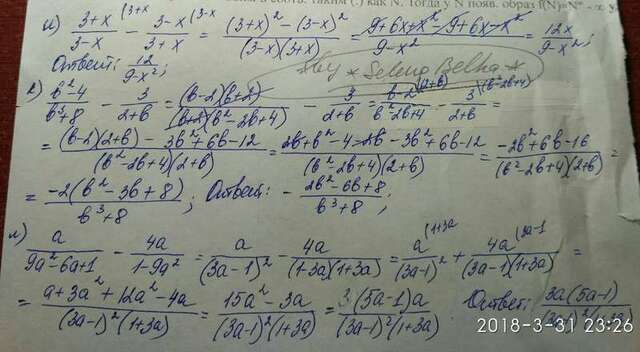 таким (.) как N. Тогда у N появ. образ f(N)=N
и) (3+x)/(3-x) (3+x - (3-x)/(3+x) (3-x = ((3+x)² - (3-x)²)/((3-x)(3+x)) = (9+6x+x² - 9+6x-x²)/(9-x²) = 12x/(9-x²);
Ответ: 12/(9-x²);
к) (b²-4)/(b³+8) - 3/(2+b) = ((b-2)(b+2))/((b+2)(b²-2b+4)) - 3/(2+b) = (b-2)/(b²-2b+4) (2+b) - 3/(2+b) (b²-2b+4) =
= ((b-2)(2+b) - 3b²+6b-12)/((b²-2b+4)(2+b)) = (2b+b²-4-2b-3b²+6b-12)/((b²-2b+4)(2+b)) = (-2b²+6b-16)/((b²-2b+4)(2+b)) =
= (-2(b²-3b+8))/(b³+8); Ответ: - (2b²-6b+8)/(b³+8);
л) a/(9a²-6a+1) - 4a/(1-9a²) = a/(3a-1)² - 4a/((1-3a)(1+3a)) = a/(3a-1)² (1+3a + 4a/((3a-1)(1+3a)) (3a-1 =
= (a+3a²+12a²-4a)/((3a-1)²(1+3a)) = (15a²-3a)/((3a-1)²(1+3a)) = (3(5a-1)a)/((3a-1)²(1+3a)) Ответ: (3a(5a-1))/((3a-1)²(1+3a))
2018-3-31 23:26